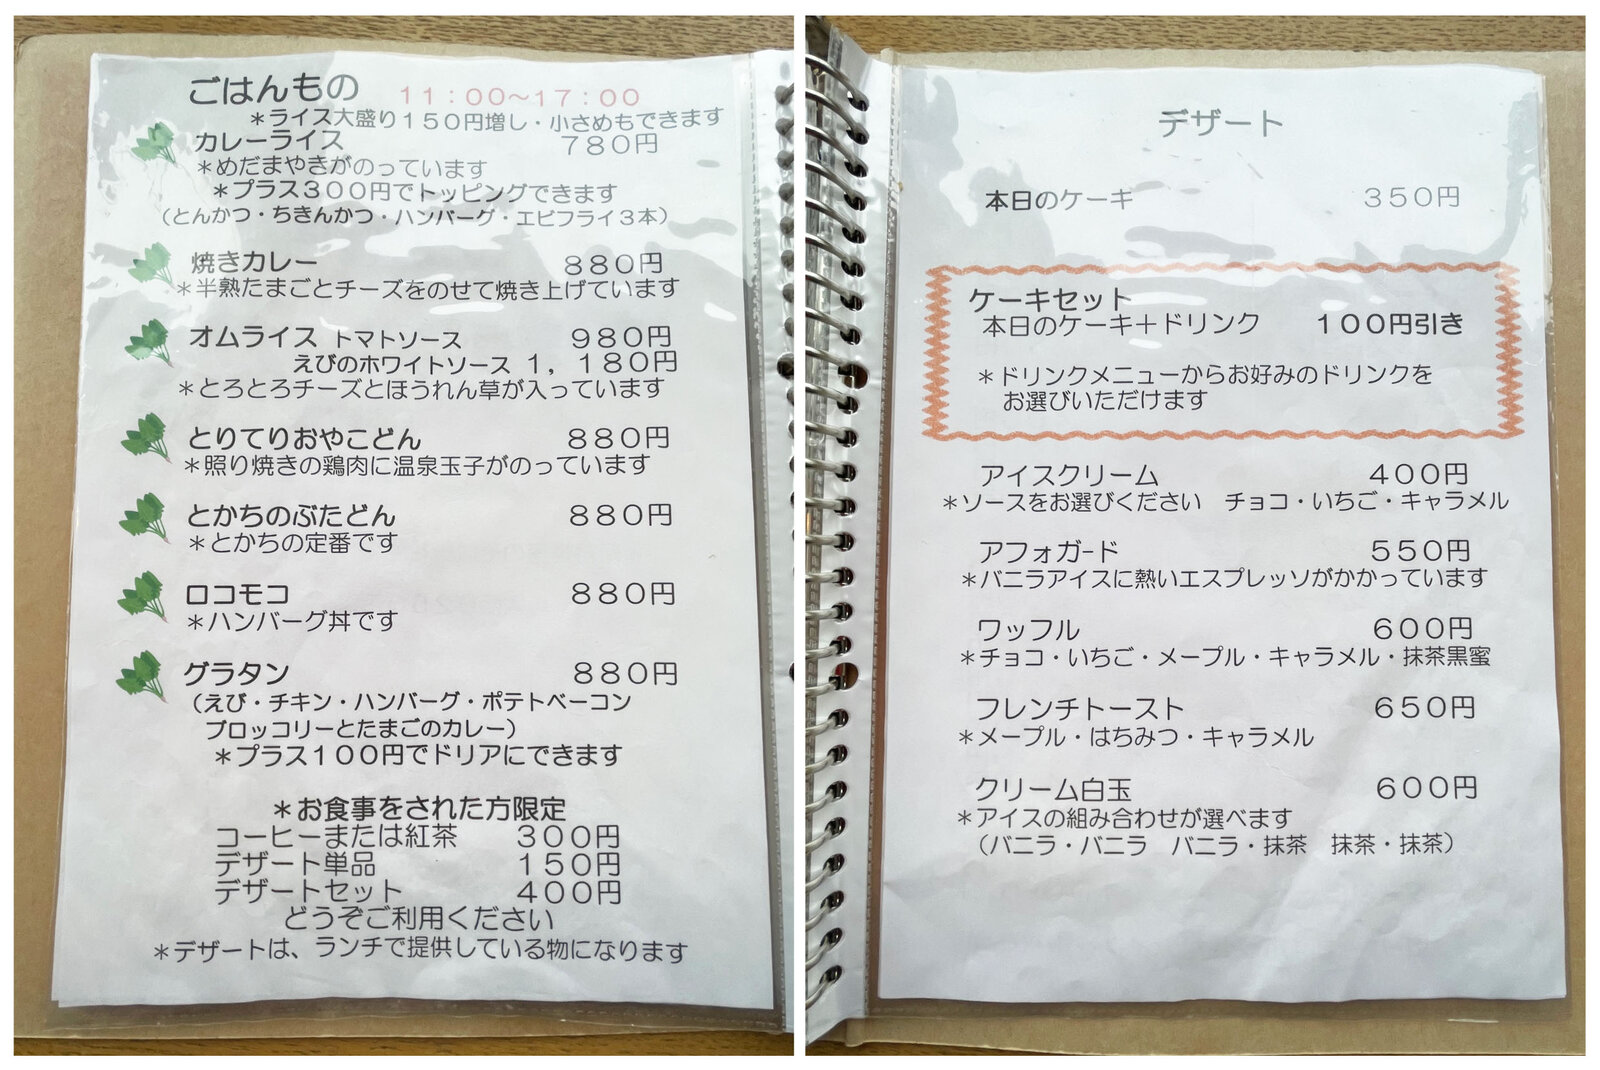 ごはんもの 11:00~17:00
*ライス大盛り150円増し・小さめもできます
カレーライス 780円
*めだまやきがのっています
*プラス300円でトッピングできます
(とんかつ・ちきんかつ・ハンバーグ・エビフライ3本)
焼きカレー 880円
*半熟たまごとチーズをのせて焼き上げています
オムライス トマトソース 980円
えびのホワイトソース 1,180円
*とろとろチーズとほうれん草が入っています
とりてりおやこどん 880円
*照り焼きの鶏肉に温泉玉子がのっています
とかちのぶたどん 880円
*とかちの定番です
ロコモコ 880円
*ハンバーグ丼です
グラタン 880円
(えび・チキン・ハンバーグ・ポテトベーコン
ブロッコリーとたまごのカレー)
*プラス100円でドリアにできます
*お食事をされた方限定
コーヒーまたは紅茶 300円
デザート単品 150円
デザートセット 400円
どうぞご利用ください
*デザートは、ランチで提供している物になります
デザート
本日のケーキ 350円
ケーキセット
本日のケーキ+ドリンク 100円引き
*ドリンクメニューからお好みのドリンクを
お選びいただけます
アイスクリーム 400円
*ソースをお選びください チョコ・いちご・キャラメル
アフォガード 550円
*バニラアイスに熱いエスプレッソがかかっています
ワッフル 600円
*チョコ・いちご・メープル・キャラメル・抹茶黒蜜
フレンチトースト 650円
*メープル・はちみつ・キャラメル
クリーム白玉 600円
*アイスの組み合わせが選べます
(バニラ・バニラ バニラ・抹茶 抹茶・抹茶)